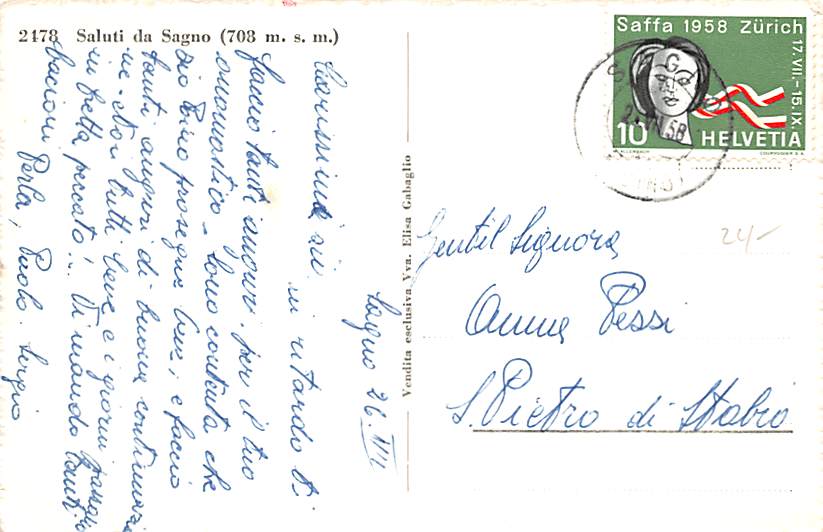 2178 Saluti da Sagno (708 m. s. m.)
Sagno 26 VII
Carissima zia
in ritardo ti
faccio tanti auguri per il tuo
onomastico - Sono contenta che
zio Piero prosegue bene, e faccio
tanti auguri di buona continuazio
ne. Noi tutti bene e i giorni passano
in fretta peccato! Vi mando tanti
bacioni Perla, Paolo. Sergio
Vendita esclusiva Vva. Elisa Gabaglio
Saffa 1958 Zürich
17.VII.-15.IX.
10 HELVETIA
COURVOISIER S.A.
SAGNO
58
24/-
Gentil Signora
Anna Pessi
S. Pietro di Stabio